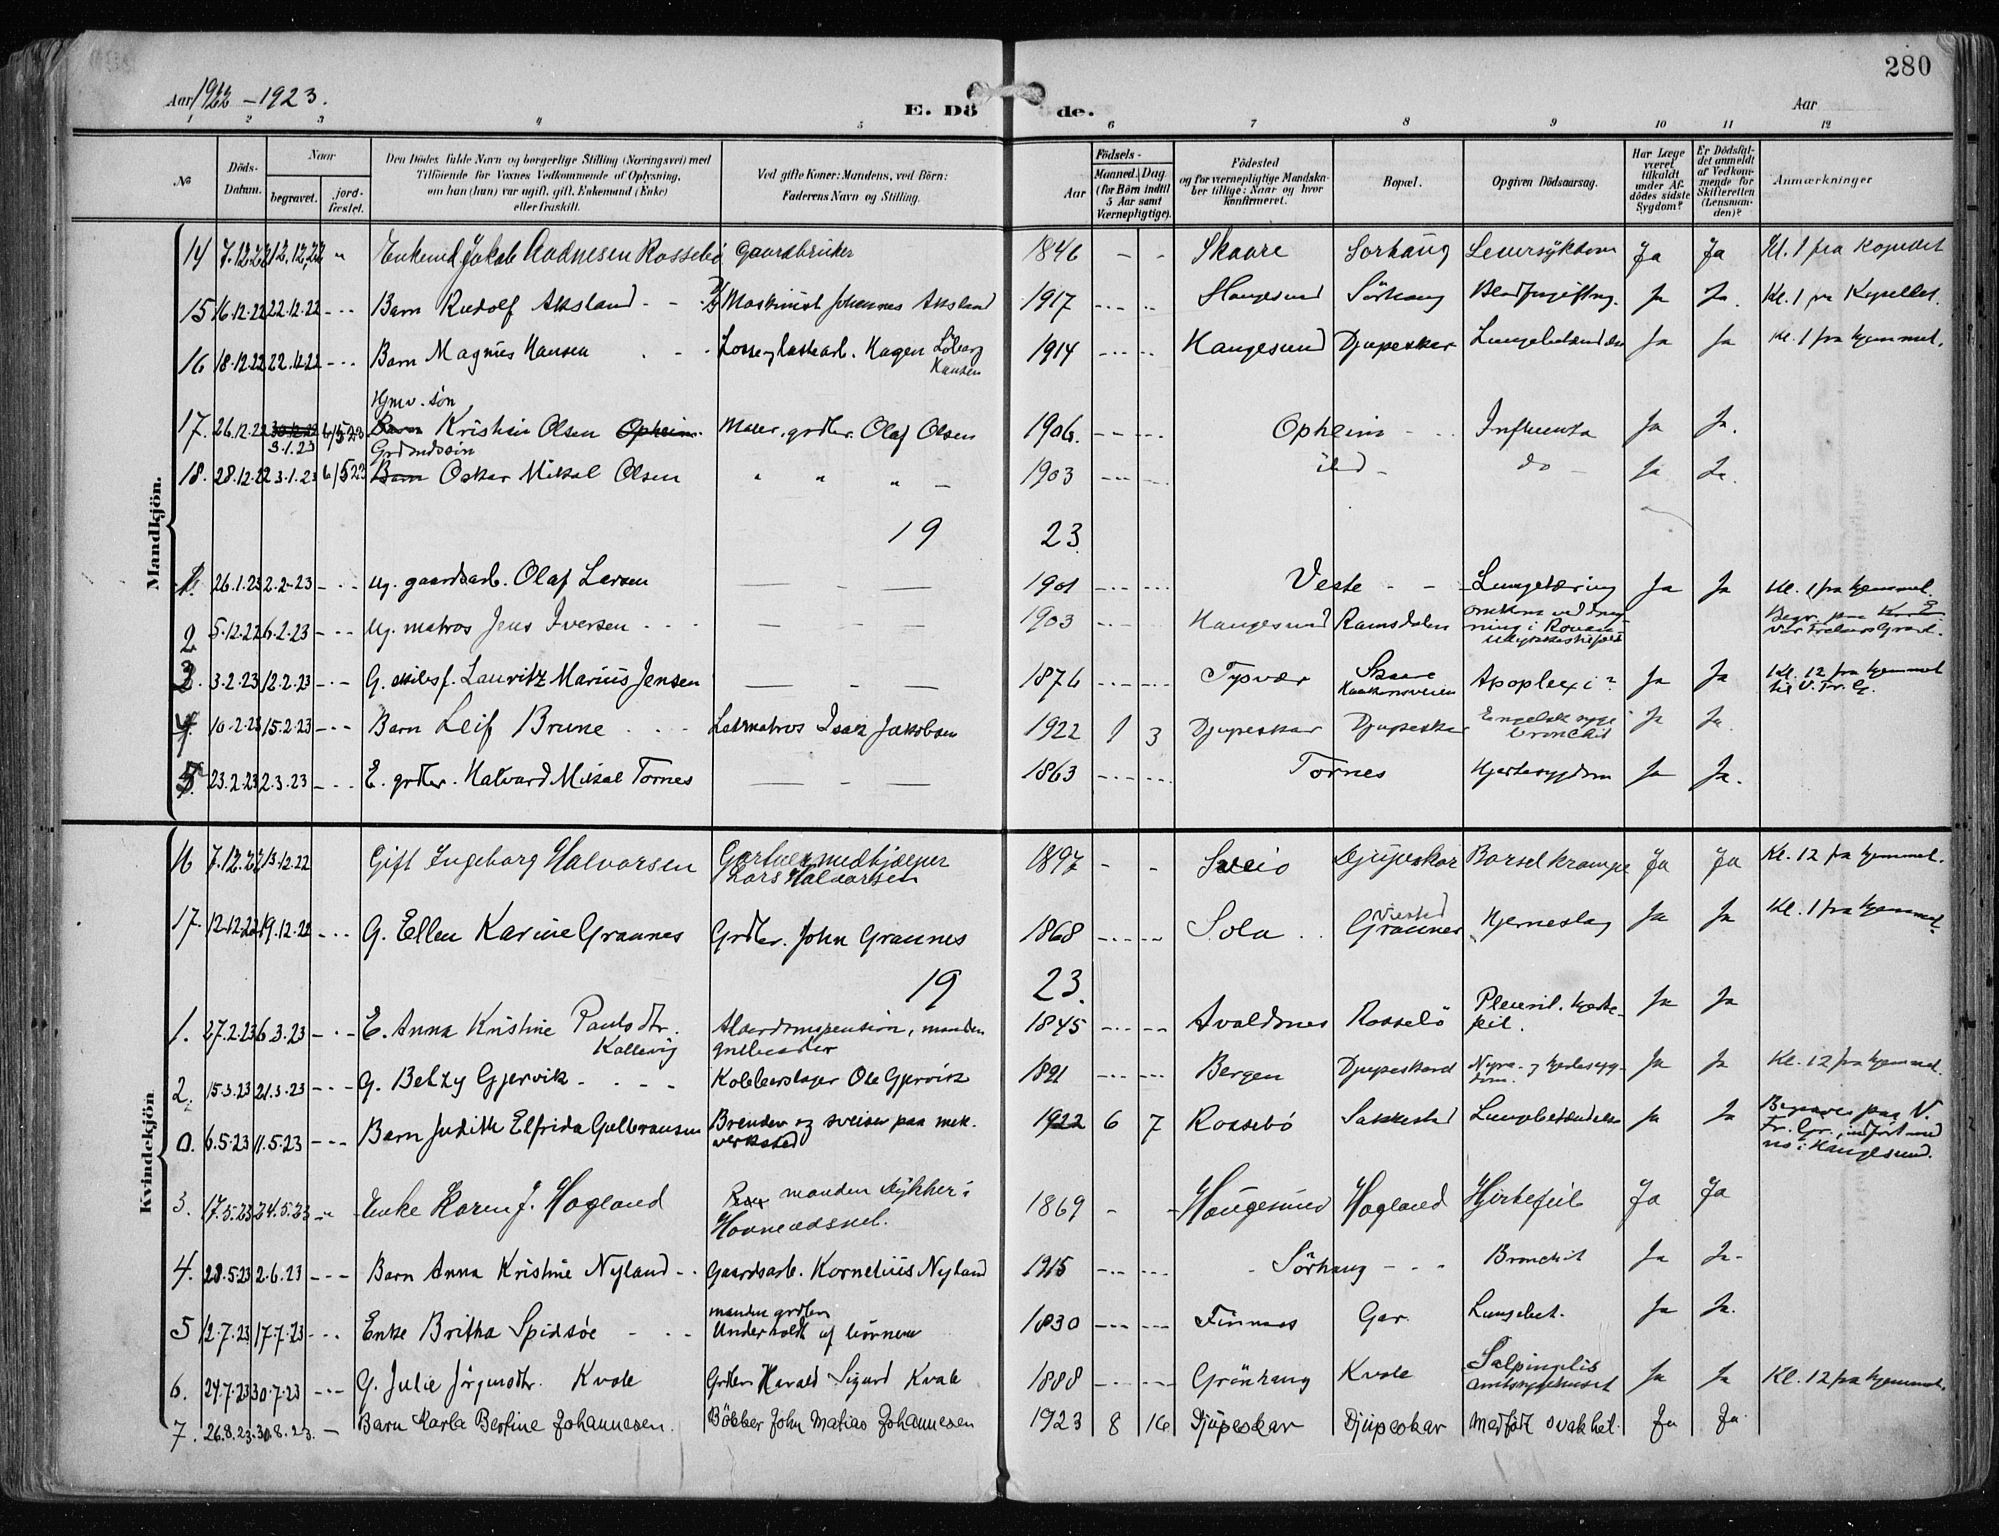 280
Aar 1922 - 1923.
E. Döde.
Aar
1 2 3 4 5 6 7 8 9 10 11 12
No
Döds-Datum.
Naar
begravet.
jord-fæstet.
Den Dödes fulde Navn og borgerlige Stilling (Næringsvei) med Tilföiende for Voxnes Vedkommende af Oplysning, om han (hun) var ugift, gift, Enkemand (Enke) eller fraskilt.
Ved gifte Koner: Mandens, ved Börn: Faderens Navn og Stilling.
Födsels-
Aar
Maaned. Dag
(for Börn indtil 5 Aar samt Værnepligtige).
Födested og for værnepligtige Mandskaber tillige: Naar og hvor konfirmeret.
Bopæl.
Opgiven Dödsaarsag.
Har Læge været tilkaldt under Afdödes sidste Sygdom?
Er Dödsfaldet anmeldt af Vedkommende for Skifteretten (Lensmanden)?
Anmærkninger
Mandkjön.
14 7.12.22 12.12.22 " Enkemd Jakob Aadnesen Rossebø Gaardbruker 1846 - - Skaare Sørhaug Leversykdom Ja Ja Kl. 1 fra Kapellet
15 16.12.22 22.12.22 - - - Barn Rudolf Aksland - - Maskinist Johannes Aksland 1917 Haugesund Sörhaug Blodforgiftng. Ja Ja. Kl. 1 fra Kapellet.
16 18.12.22 22.12.22 - - - Barn Magnus Hansen Losse og lastearb. Hagen Hansen 1914 Haugesund Djupeskar Lungebetændelse Ja Ja Kl. 1 fra hjemmet.
Hjmv. sön
17. 26.12.22 30.12.22 3.1.23 6/5 23 Barn Kristian Olsen Opheim Maler, grdbr. Olaf Olsen 1906. Opheim Influenza Ja Ja.
Grdmdssön
18. 28.12.22 3.1.23 6/5 23 Barn Oskar Mikal Olsen " " " - 1903 ibid - do - Ja Ja.
19 23
1. 26.1.23 2.2.23 - - - Ug. gaardsarb. Olaf Larsen 1901 Veste - - Lungetæring Ja Ja Kl. 1 fra hjemmet.
2 5.12.22 6.2.23 - - - Ug. matros Jens Iversen 1903 Haugesund Ramsdalen Omkom ved drukning i Rouen Begr. paa Vår Frelsers Gravl.
3. 3.2.23 12.2.23 - - - G. Lauritz Marius Jensen 1876 Tysvær Skaare Apoplexi? Ja Ja Kl. 12 fra hjemmet til V. Fr. G.
4. 10.2.23 15.2.23 - - - Barn Leif Brune Letmatros Isak Jakobsen 1922 1 3 Djupeskar Djupeskar Engelsk syge bronchit Ja Ja.
5. 23.2.23 2.3.23 - - - E. grdbr. Halvard Mikal Tornes 1863 Tornes Hjertesygdom Ja Ja.
Kvindekjön
16 7.12.22 13.12.22 Gift Ingeborg Halvorsen Gartnermedhjælper Lars Halvorsen 1897 - - Sveio Djupeskar Barselkrampe Ja Ja Kl. 12 fra hjemmet.
17. 12.12.22 19.12.22 - - - G. Ellen Karine Graunes Grdbr. John Graunes 1868 Sola Graunes Hjerneslag Ja Ja Kl. 1 fra hjemmet.
19 23.
1. 27.2.23 6.3.23 - - - E. Anna Kristine Paulsdtr. Kallevig Alderdomspension, manden 1845 Avaldsnes Rossebö Pleurit. Hjertefeil. Ja Ja
2. 15.3.23 21.3.23 - - - G. Betzy Gjervik - - - - Kobberslager Ole Gjervik 1891 Bergen Djupeskard Nyre- og hjertesygdom. Ja Ja Kl. 12 fra hjemmet.
0. 6.5.23 11.5.23 - - - Barn Judith Elfrida Gulbransen Brender og sveiser paa mek. verksted 1922 6 7 Rossebö Sakkestad Lungebetændelse Ja Ja Begraves paa V. Fr. Gr., indfört med no i Haugesund.
3. 17.5.23 24.5.23 " Enke Karen J. Hagland manden stykker i Havnevæsnet. 1869 - - Haugesund Hagland Hjertefeil Ja Ja
4. 28.5.23 2.6.23 - - - Barn Anna Kristine Nyland - - Gaardsarb. Kornelius Nyland 1915 Sörhaug - - - Bronchit Ja Ja.
5 12.7.23 17.7.23 - - - Enke Britha Spidsöe manden grdbr. Underholdt af börnene 1830 Finnaas Gar. Lungebet. Ja Ja.
6. 24.7.23 30.7.23 - - - G. Julie Jörgensdtr. Kvale Grdbr. Harald Sigurd Kvale 1888 Grönhaug Kvale Salpingitis amtssygehuset Ja Ja Kl. 12 fra hjemmet.
7. 26.8.23. 30.8.23. - Barn Karla Bertine Johannesen. Bökker John Matias Johannesen 1923 8 16 Djupeskar Djupeskar Medfödt svakhet. Ja Ja.